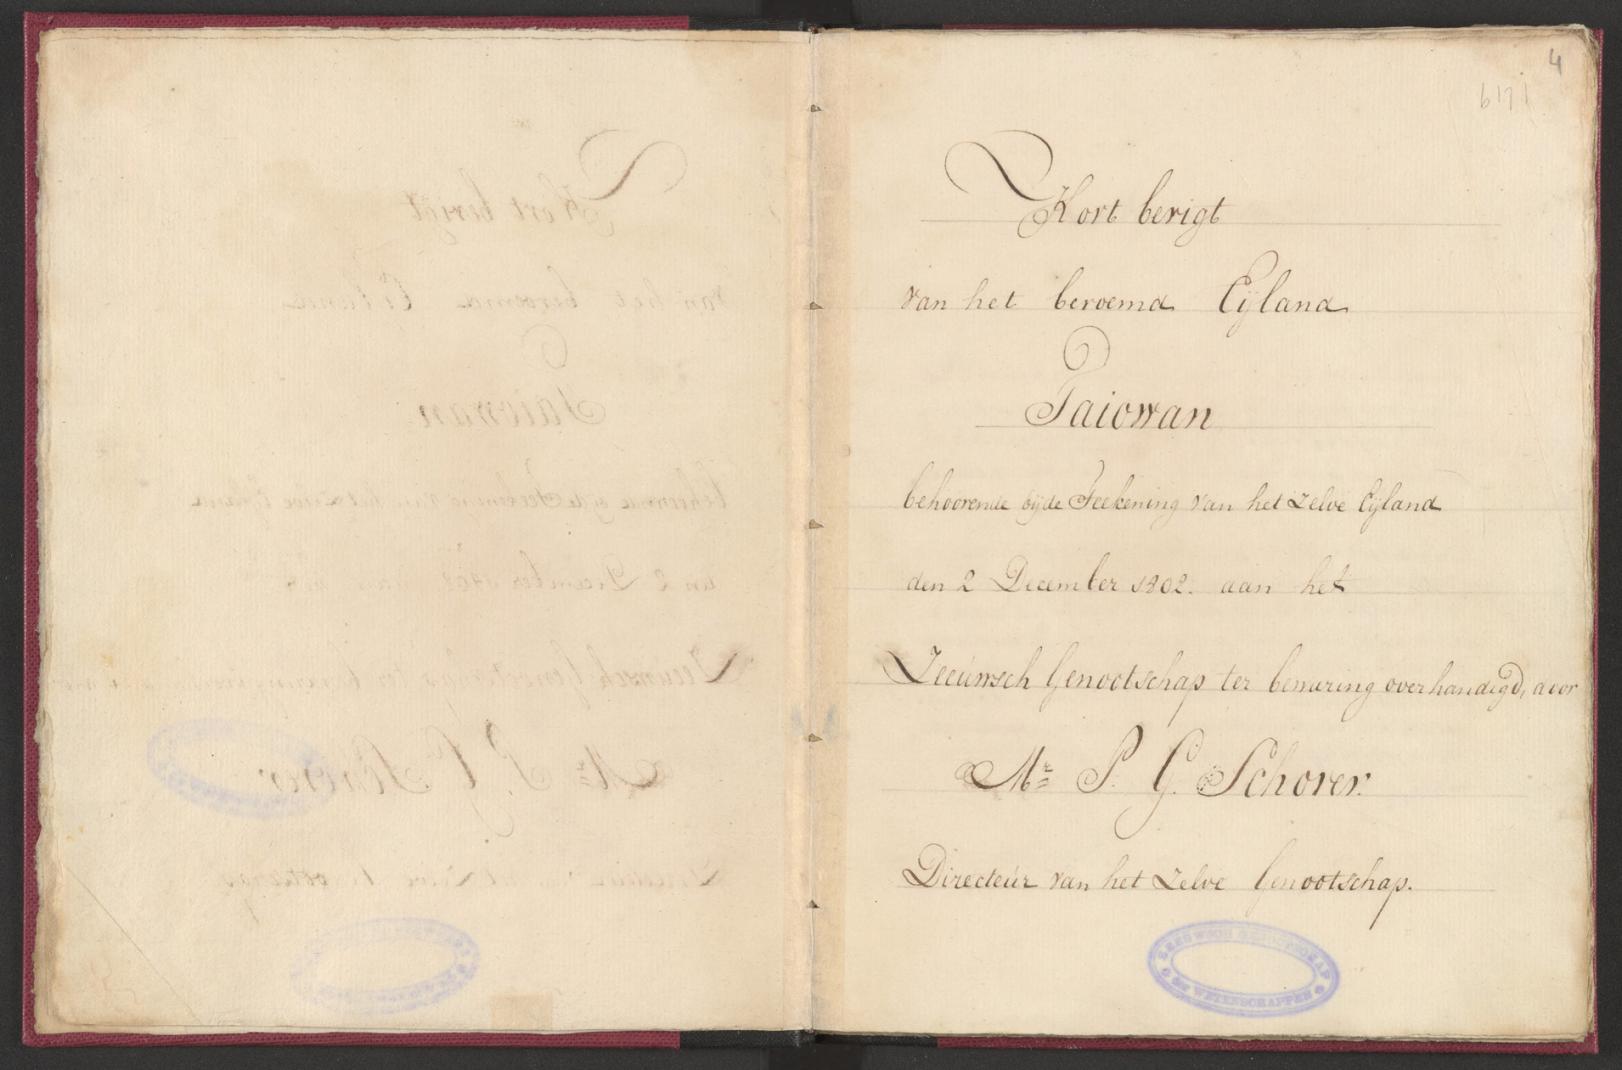 4
6171
Kort berigt
van het beroemd Eÿland
Taiowan
behoorende bÿde Teekening van het zelve Eÿland
den 2 December 1802. aan het
Zeeuwsch Genootschap ter bewaring overhandigd, door
Mr P. G. Schorer.
Directeur van het zelve Genootschap.
ZEEUWSCH GENOOTSCHAP
DER WETENSCHAPPEN